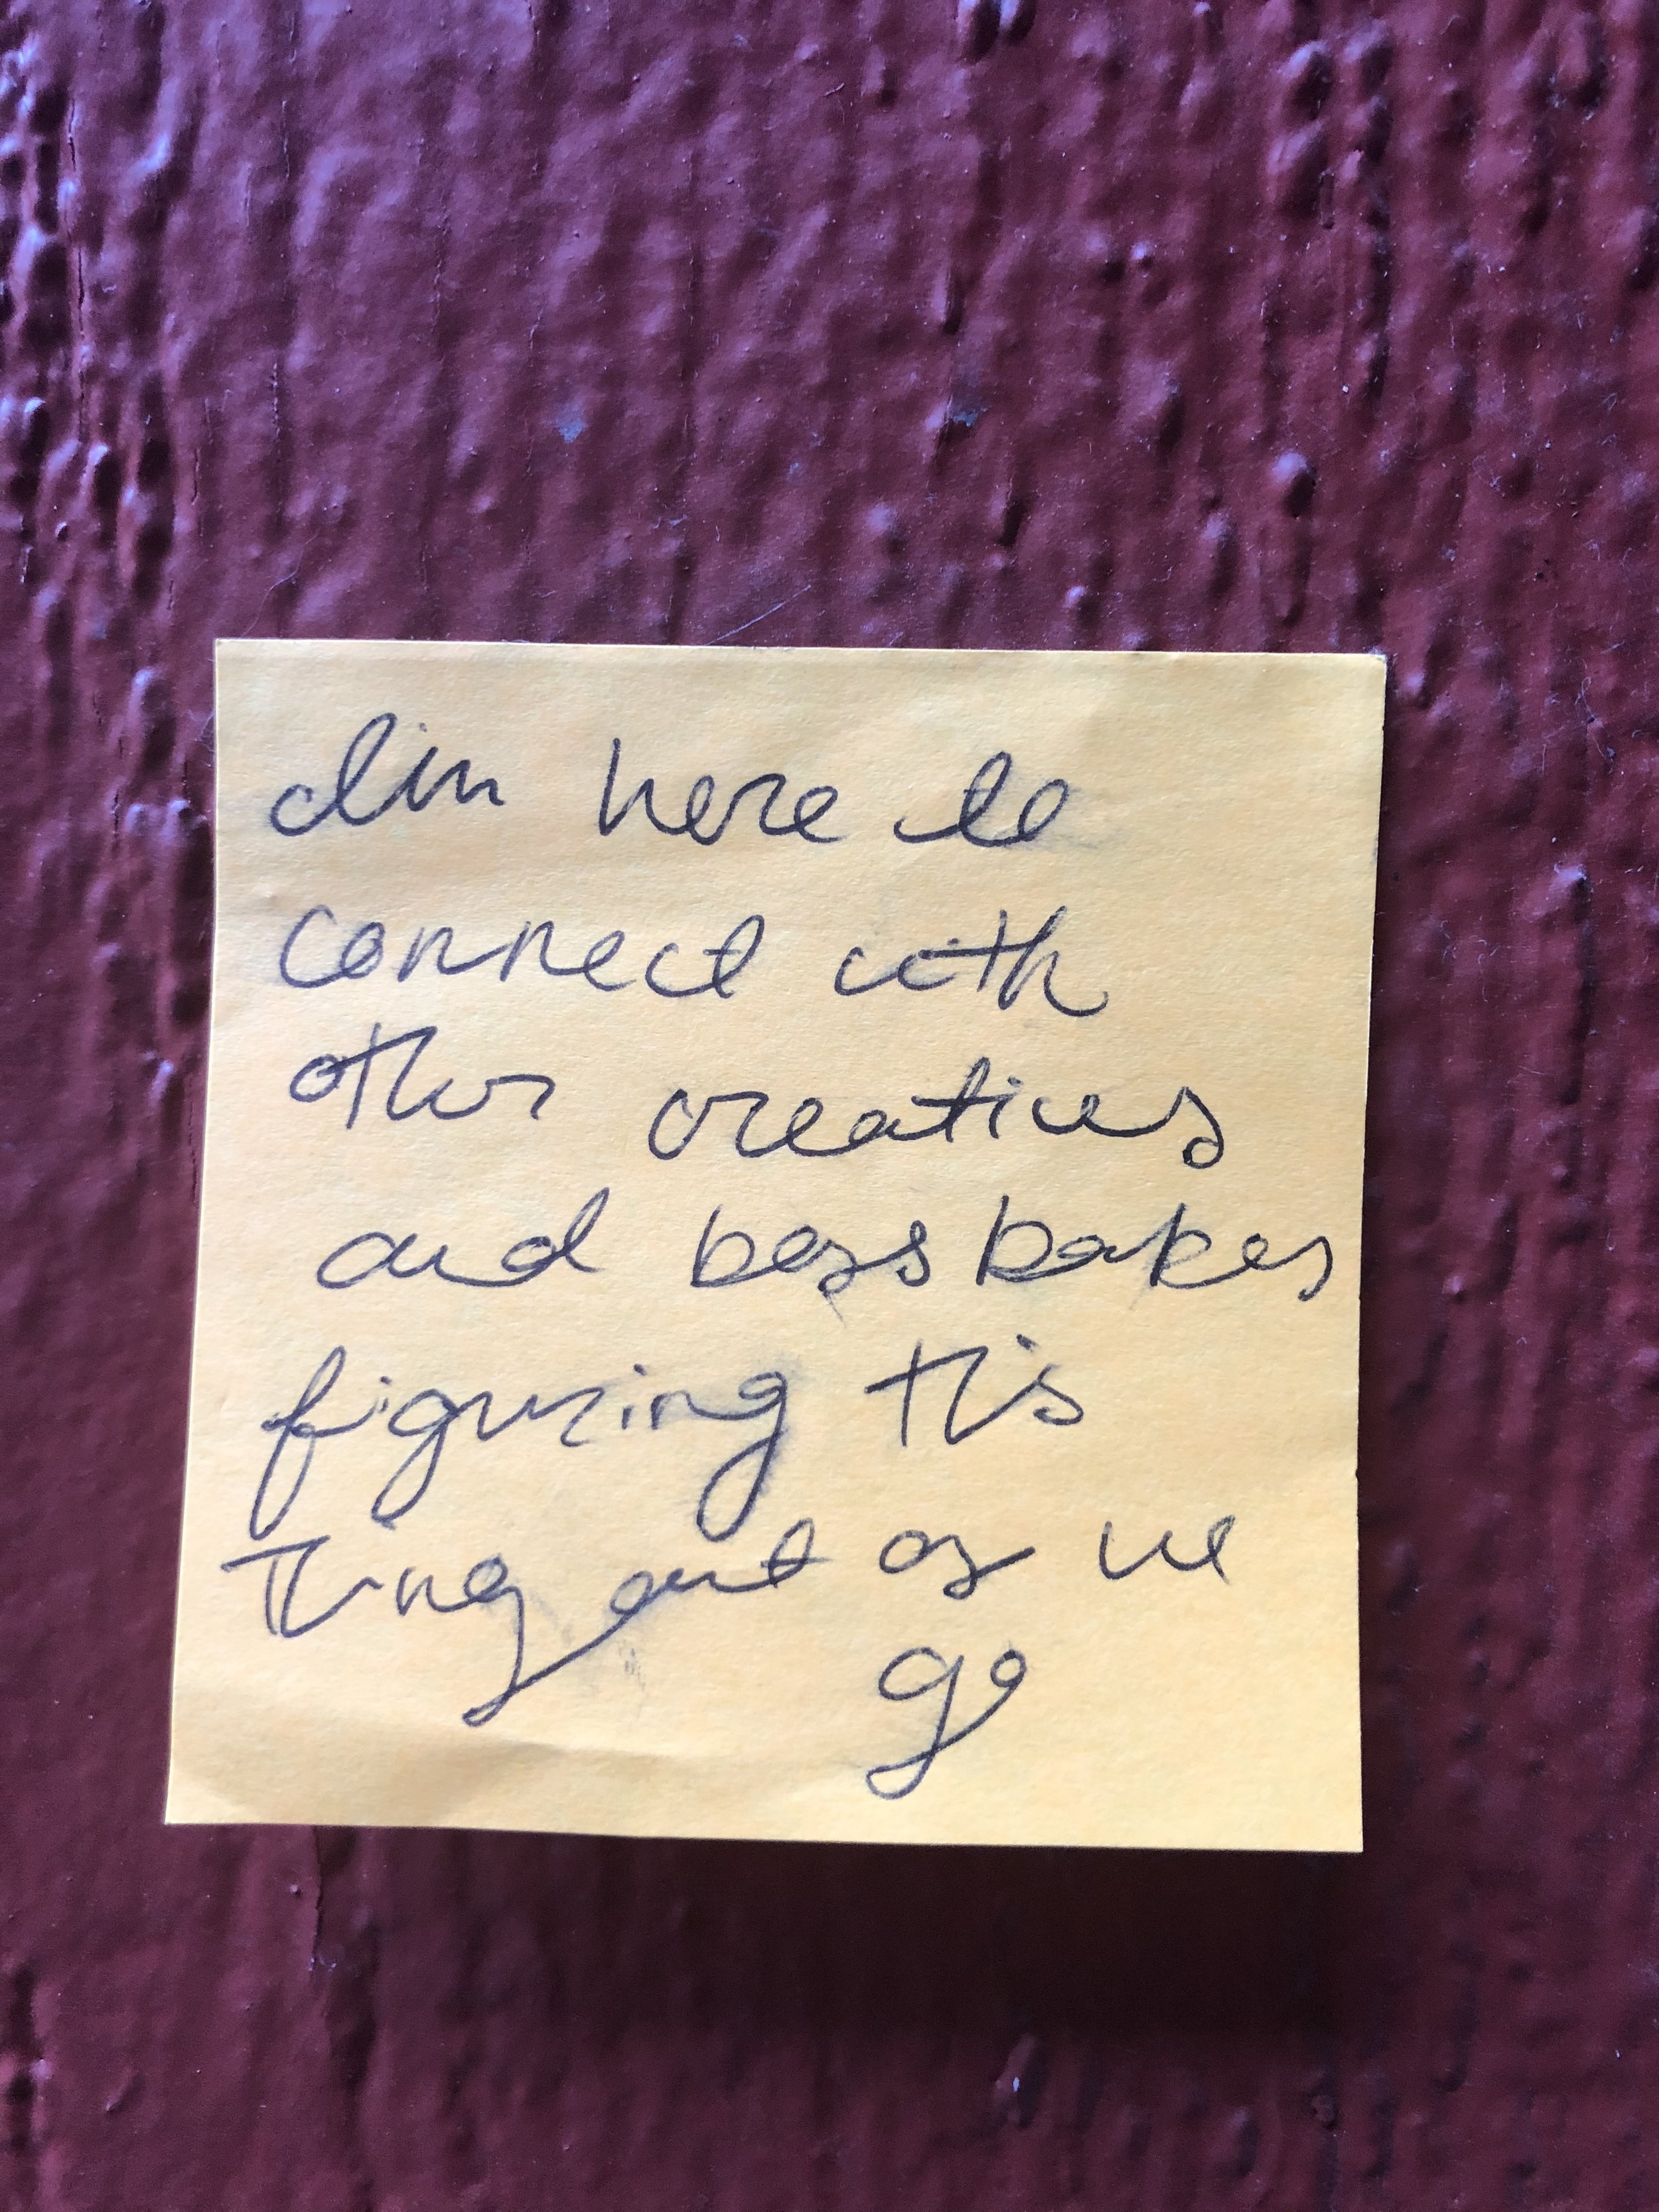 I'm here to
connect with
other creatives
and boss babes
figuring this
thing out as we
go